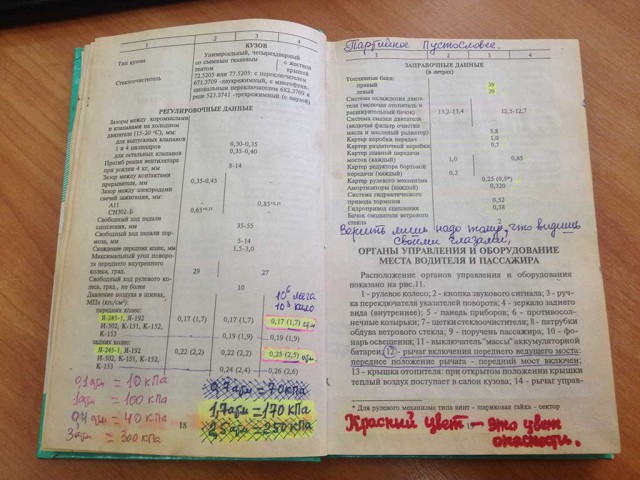 1 2 3 4
КУЗОВ
Тип кузова
Универсальный, четырехдверный
со съемным тканевым тентом
с жесткой крышей
Стеклоочиститель
72.5205 или 77.5205: с переключателем
671.3709 -двухрежимный, с многофунк-
циональным переключателем 682.3769 и
реле 523.3741 -трехрежимный (с паузой)
РЕГУЛИРОВОЧНЫЕ ДАННЫЕ
Зазоры между коромыслами
и клапанами на холодном
двигателе (15-20 °С), мм:
для выпускных клапанов
1 и 4 цилиндров 0,30-0,35
для остальных клапанов 0,35-0,40
Прогиб ремня вентилятора
при усилии 4 кг, мм 8-14
Зазор между контактами
прерывателя, мм 0,35-0,45
Зазор между электродами
свечей зажигания, мм:
А11 0,85
СН302-Б 0,65
Свободный ход педали
сцепления, мм 35-55
Свободный ход педали тор-
моза, мм 5-14
Схождение передних колес, мм 1,5-3,0
Максимальный угол поворо-
та переднего внутреннего
колеса, град. 29 27
Свободный ход рулевого ко-
леса, град., не более 10
Давление воздуха в шинах,
МПа (кгс/см²):
10⁶ мега
10³ кило
передних колес:
Я-245-1, Я-192 0,17 (1,7) 0,17 (1,7) 0,17 (1,7) атм
И-502, К-151, К-152,
К-153 0,19 (1,9) 0,19 (1,9)
задних колес:
Я-245-1, Я-192 0,22 (2,2) 0,22 (2,2) 0,25 (2,5) атм
И-502, К-151, К-152,
К-153 0,24 (2,4) 0,26 (2,6)
0,1 атм = 10 кПа
1 атм = 100 кПа
0,4 атм = 40 кПа
3 атм = 300 кПа
0,7 атм = 70 кПа
1,7 атм = 170 кПа
2,5 атм = 250 кПа
18
Партийное Пустословее.
1 2 3 4
ЗАПРАВОЧНЫЕ ДАННЫЕ
(в литрах)
Топливные баки:
правый 39
левый 39
Система охлаждения двига-
теля (включая отопитель и
расширительный бачок) 13,2-13,4 12,5-12,7
Система смазки двигателя
(включая фильтр очистки
масла и масляный радиатор) 5,8
Картер коробки передач 1,0
Картер раздаточной коробки 0,7
Картер главной передачи
мостов (каждый) 1,0 0,85
Картер редуктора бортовой
передачи (каждый) 0,3
Картер рулевого механизма 0,25 (0,5*)
Амортизаторы (каждый) 0,320
Система гидравлического
привода тормозов 0,52
Гидропривод сцепления 0,18
Бачок омывателя ветрового
стекла 2
Верить лишь надо тому, что видишь
своими глазами,
ОРГАНЫ УПРАВЛЕНИЯ И ОБОРУДОВАНИЕ
МЕСТА ВОДИТЕЛЯ И ПАССАЖИРА
Расположение органов управления и оборудования
показано на рис.11.
1 - рулевое колесо; 2 - кнопка звукового сигнала; 3 - руч-
ка переключателя указателей поворота; 4 - зеркало заднего
вида (внутреннее); 5 - панель приборов; 6 - противосол-
нечные козырьки; 7 - щетки стеклоочистителя; 8 - патрубки
обдува ветрового стекла; 9 - поручень пассажира; 10 - фо-
нарь освещения; 11 - выключатель "массы" аккумуляторной
батареи; 12 - рычаг включения переднего ведущего моста:
переднее положение рычага - передний мост включен;
13 - крышка отопителя: при открытом положении крышки
теплый воздух поступает в салон кузова; 14 - рычаг управ-
* Для рулевого механизма типа винт - шариковая гайка - сектор
Красный цвет – это цвет
опасности.